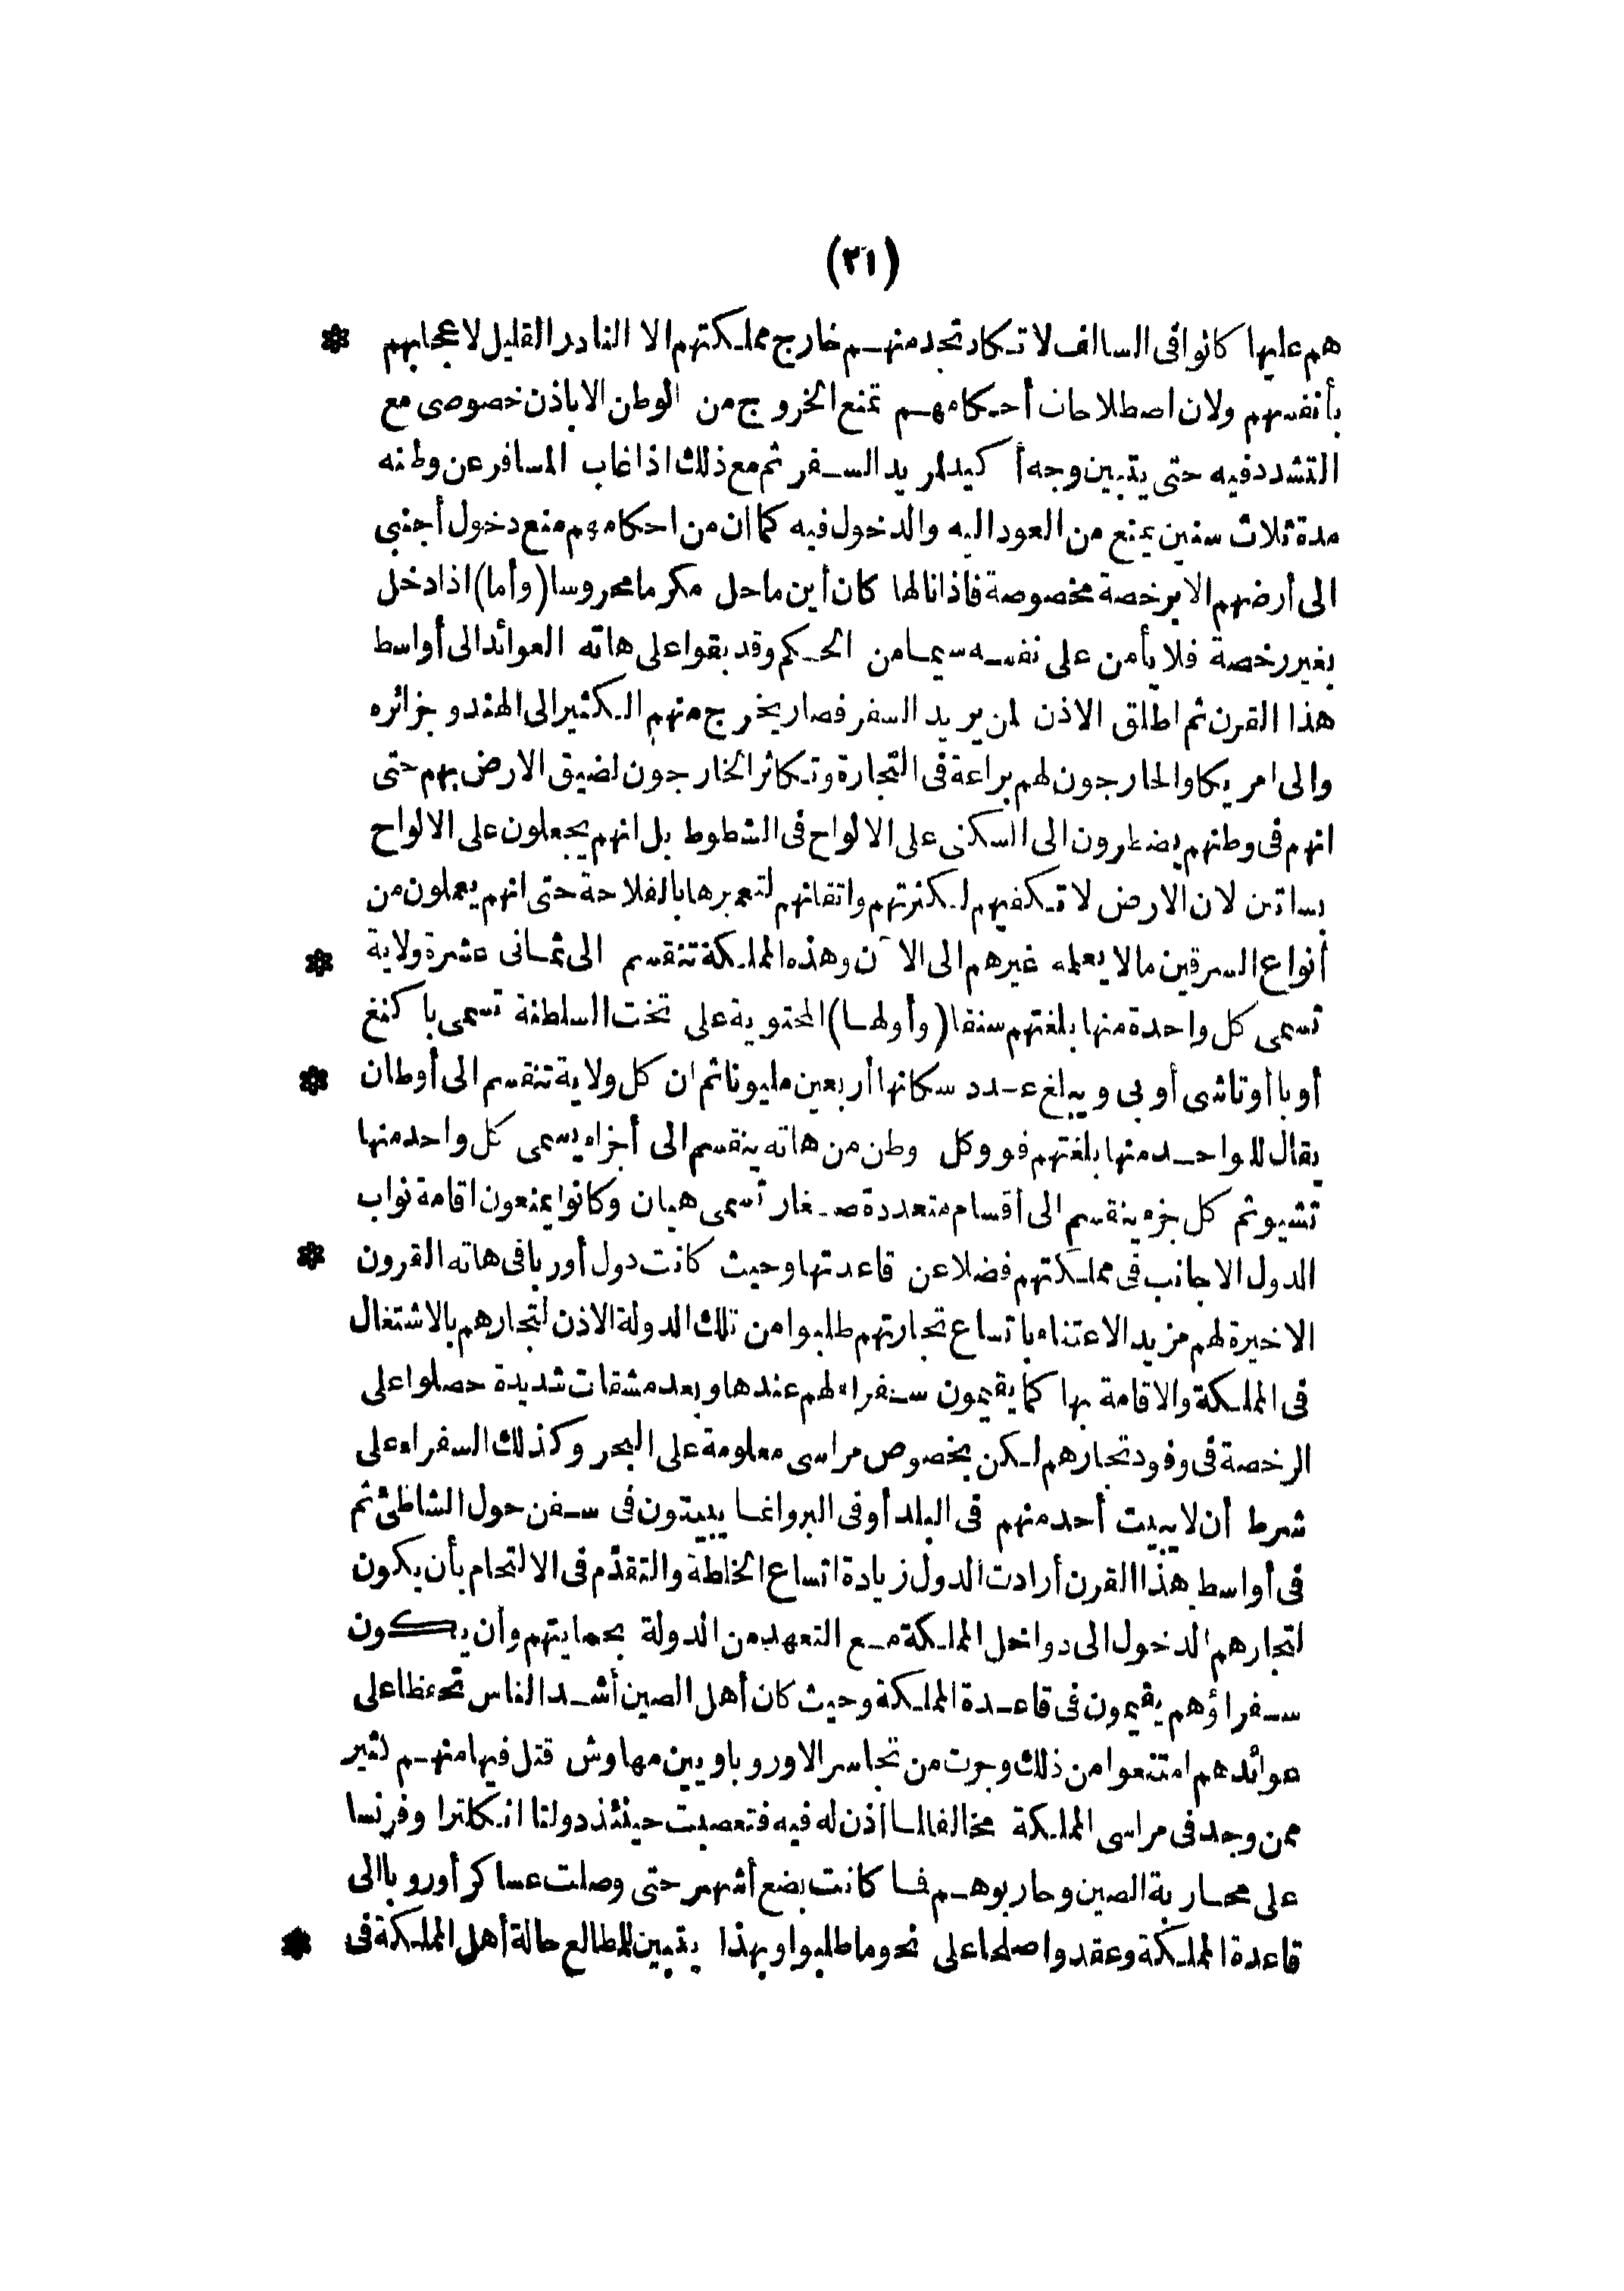 (٢١)
هم عليها كانوا فى السالف لا تكاد تجد منهم خارج مملكتهم الا النادر القليل لاعجابهم *
بأنفسهم ولان اصطلاحات أحكامهم تمنع الخروج من الوطن الا باذن خصوصى مع
التشدد فيه حتى يتبين وجه أكيد لمريد السفر ثم مع ذلك اذا غاب المسافر عن وطنه
مدة ثلاث سنين يمنع من العود اليه والدخول فيه كما ان من احكامهم منع دخول أجنبى
الى أرضهم الا برخصة مخصوصة فاذا نالها كان أين ما حل مكرما محروسا (وأما) اذا دخل
بغير رخصة فلا يأمن على نفسه سيما من الحكم وقد بقوا على هاته العوائد الى أواسط
هذا القرن ثم اطلق الاذن لمن يريد السفر فصار يخرج منهم الكثير الى الهند وجزائره
والى امريكا والخارجون لهم براعة فى التجارة وتكاثر الخارجون لضيق الارض بهم حتى
انهم فى وطنهم يضطرون الى السكنى على الالواح فى الشطوط بل انهم يجعلون على الالواح
بساتين لان الارض لا تكفيهم لكثرتهم واتقانهم لتعميرها بالفلاحة حتى انهم يعملون من
أنواع السرقين ما لا يعمله غيرهم الى الآن وهذه المملكة تنقسم الى ثمانى عشرة ولاية *
تسمى كل واحدة منها بلغتهم سنقا (وأولها) المحتوية على تخت السلطنة تسمى با كنغ
أو با أوتاشى أو بى ويبلغ عدد سكانها أربعين مليونا ثم ان كل ولاية تنقسم الى أوطان *
يقال للواحد منها بلغتهم فو وكل وطن من هاته ينقسم الى أجزاء يسمى كل واحد منها
تشيو ثم كل جزء ينقسم الى أقسام متعددة صغار تسمى هيان وكانوا يمنعون اقامة نواب
الدول الاجانب فى مملكتهم فضلا عن قاعدتها وحيث كانت دول أوربا فى هاته القرون *
الاخيرة لهم مزيد الاعتناء باتساع تجارتهم طلبوا من تلك الدولة الاذن لتجارهم بالاشتغال
فى المملكة والاقامة بها كما يقيمون سفراء لهم عندها وبعد مشقات شديدة حصلوا على
الرخصة فى وفود تجارهم لكن بخصوص مراسى معلومة على البحر وكذلك السفراء على
شرط أن لا يبيت أحد منهم فى البلد أو فى البر وانما يبيتون فى سفن حول الشاطئ ثم
فى أواسط هذا القرن أرادت الدول زيادة اتساع الخلطة والتقدّم فى الالتحام بأن يكون
لتجارهم الدخول الى دواخل المملكة مع التعهد من الدولة بحمايتهم وأن يكون
سفراؤهم يقيمون فى قاعدة المملكة وحيث كان أهل الصين أشد الناس تحفظا على
عوائدهم امتنعوا من ذلك وجرت من تجاسر الاوروباويين مهاوش قتل فيها منهم كثير
ممن وجد فى مراسى المملكة مخالفا لما أذن له فيه فتعصبت حينئذ دولتا انكلترا وفرنسا
على محاربة الصين وحاربوهم فما كانت بضع أشهر حتى وصلت عساكر أوروبا الى
قاعدة المملكة وعقدوا صلحا على نحو ما طلبوا وبهذا يتبين للمطالع حالة أهل المملكة فى *